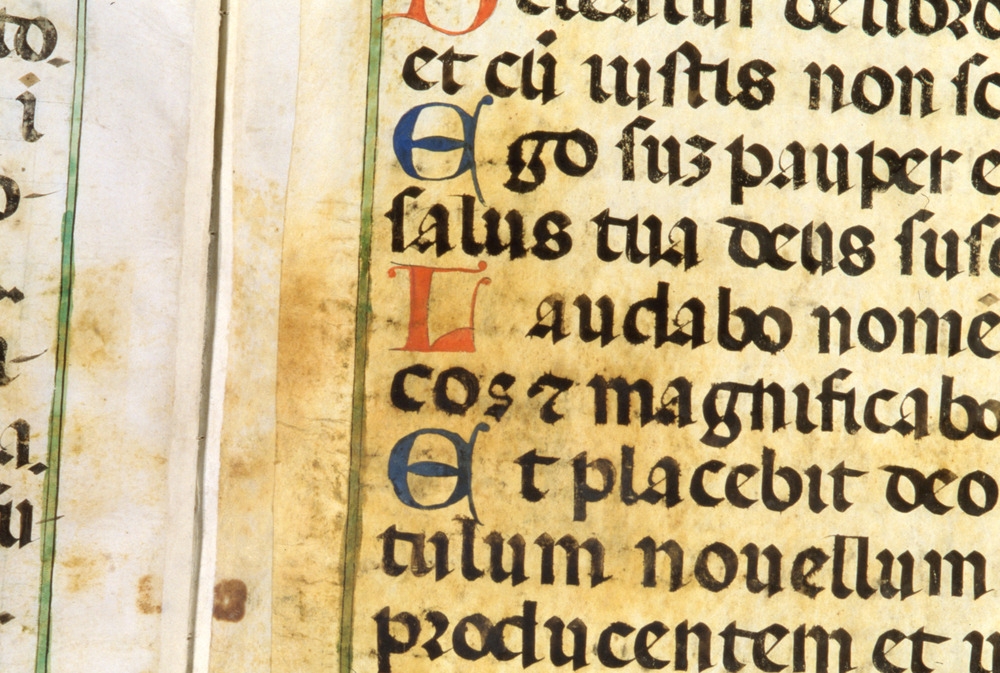 Deleatur de libro
et cū iustis non sc
Ego suz pauper e
salus tua deus susc
Laudabo nomē
cos ⁊ magnificabo
Et placebit deo
tulum nouellum
producentem et u